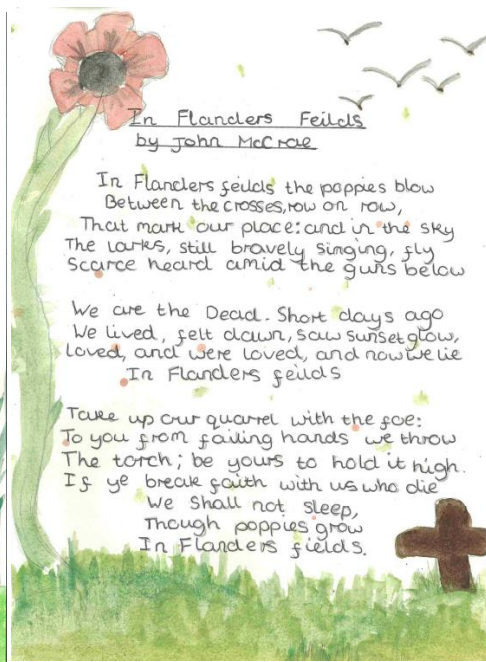 In Flanders Feilds
by John McCrae
In Flanders feilds the poppies blow
Between the crosses, row on row,
That mark our place: and in the sky
The larks, still bravely singing, fly
Scarce heard amid the guns below
We are the Dead. Short days ago
We lived, felt dawn, saw sunset glow,
Loved, and were loved, and now we lie
In Flanders feilds
Take up our quarrel with the foe:
To you from failing hands we throw
The torch; be yours to hold it high.
If ye break faith with us who die
We shall not sleep,
Though poppies grow
In Flanders fields.